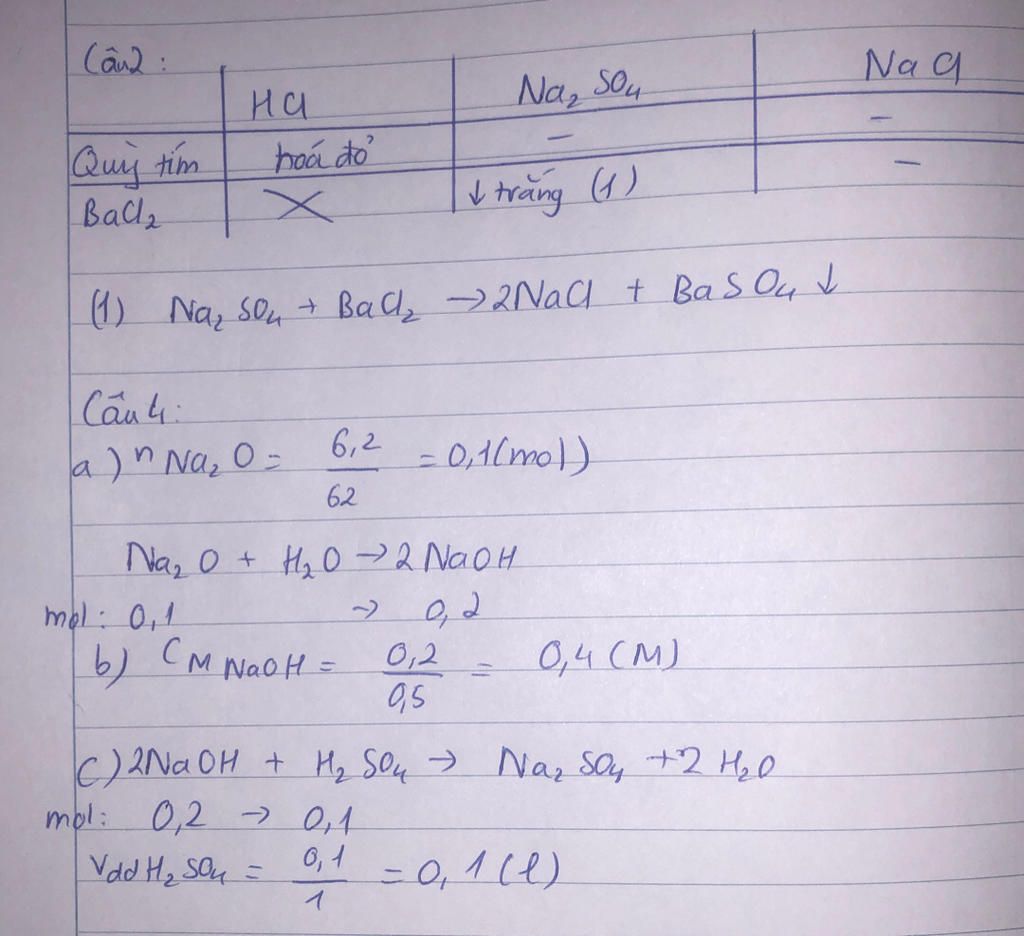 Câu2:
HCl Na₂SO₄ NaCl
Quỳ tím hoá đỏ - -
BaCl₂ X ↓ trắng (1) -
(1) Na₂SO₄ + BaCl₂ → 2NaCl + BaSO₄ ↓
Câu 4:
a) nNa₂O = 6,2/62 = 0,1(mol)
Na₂O + H₂O → 2NaOH
mol: 0,1 → 0,2
b) CM NaOH = 0,2/0,5 = 0,4 (M)
c) 2NaOH + H₂SO₄ → Na₂SO₄ + 2H₂O
mol: 0,2 → 0,1
VddH₂SO₄ = 0,1/1 = 0,1 (l)